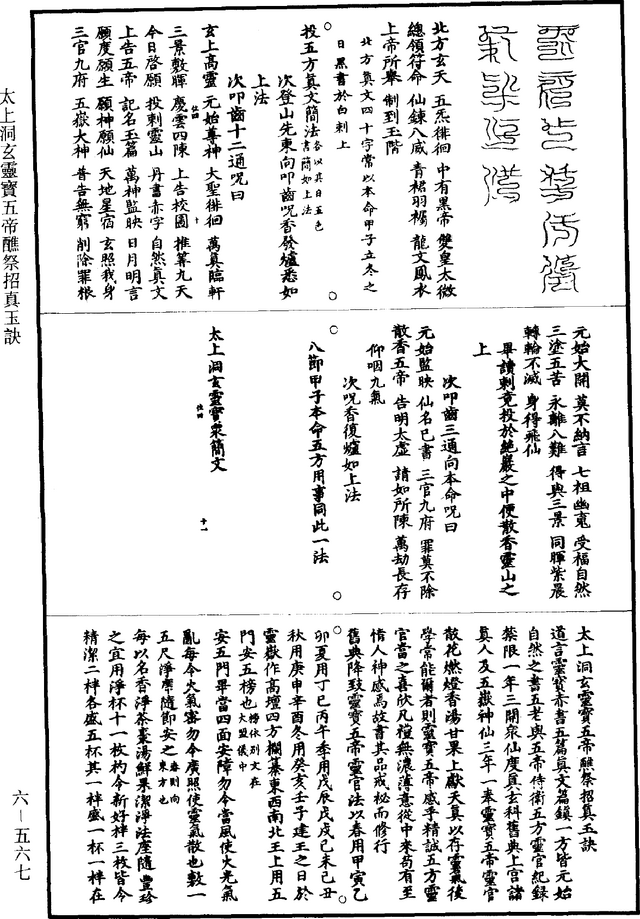 北方玄天　五炁徘徊　中有黑帝　雙皇太微
總領符命　仙錬八威　青裙羽襡　龍文鳳衣
上帝所舉　制到玉階
北方真文四十字常以本命甲子立冬之
日黑書於白刺上
投五方真文簡法各以其日五色書簡如上法
次登山先東向叩齒呪香發爐悉如
上法
次叩齒十二通呪曰
玄上高靈　元始尊神　大聖徘徊　萬真臨軒
三景敷暉　慶雲四陳　上告校圖　推筭九天
今日啓願　投刺靈山　丹書赤字　自然真文
上告五帝　記名玉篇　萬神監映　日月明言
願度願生　願神願仙　天地星宿　玄照我身
三官九府　五嶽大神　普告無窮　削除罪根
元始大開　莫不納言　七祖幽寃　受福自然
三塗五苦　永離八難　得與三景　同暉紫晨
轉輪不滅　身得飛仙
畢讀刺竟投於絶巖之中便散香靈山之
上
次叩齒三通向本命呪曰
元始監映　仙名已書　三官九府　罪莫不除
散香五帝　告明太虚　請如所陳　萬劫長存
仰咽九氣
次呪香復爐如上法
八節甲子本命五方用事同此一法
太上洞玄靈寶衆簡文
太上洞玄靈寶五帝醮祭招真玉訣
道言靈寶赤書五篇真文篇錄一方皆元始
自然之書五老與五帝侍衛五方靈官紀錄
禁限一年三開衆仙度真玄科舊典上宫諸
真人及五嶽神仙三年一奉靈寶五帝靈官
散花燃燈香湯甘果上獻天真以存靈氣後
學常能爾者則靈寶五帝感乎精誠五方靈
官當之喜欣凡禮無濃薄意從中來苟有至
情人神感焉故書其品戒秘而修行
舊典降致靈寶五帝靈官法以春用甲寅乙
卯夏用丁巳丙午季用戊辰戊戌己未己丑
秋用庚申辛酉冬用癸亥壬子建王之日於
靈嶽作高壇四方欄纂東西南北王上用五
門安五榜也榜依列文在大盟儀中
安五門畢當四面安障勿令當風使火光氣
亂每令火氣密勿令廣照使靈氣散也敷一
五尺淨席隨節安之春則向東方也
每以名香淨茶棗湯鮮果潔淨法座隨豐珍
之宜用淨杯十一枚杓令新好拌三枚皆令
精潔二拌各盛五杯其一拌盛一杯一拌在
太上洞玄靈寶五帝醮祭招真玉訣
六－五六七